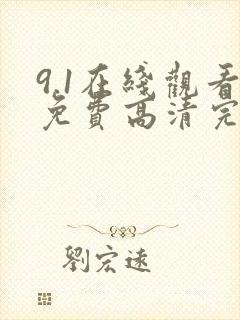 9.1在綫觀看
免費高清完
劉宏遠